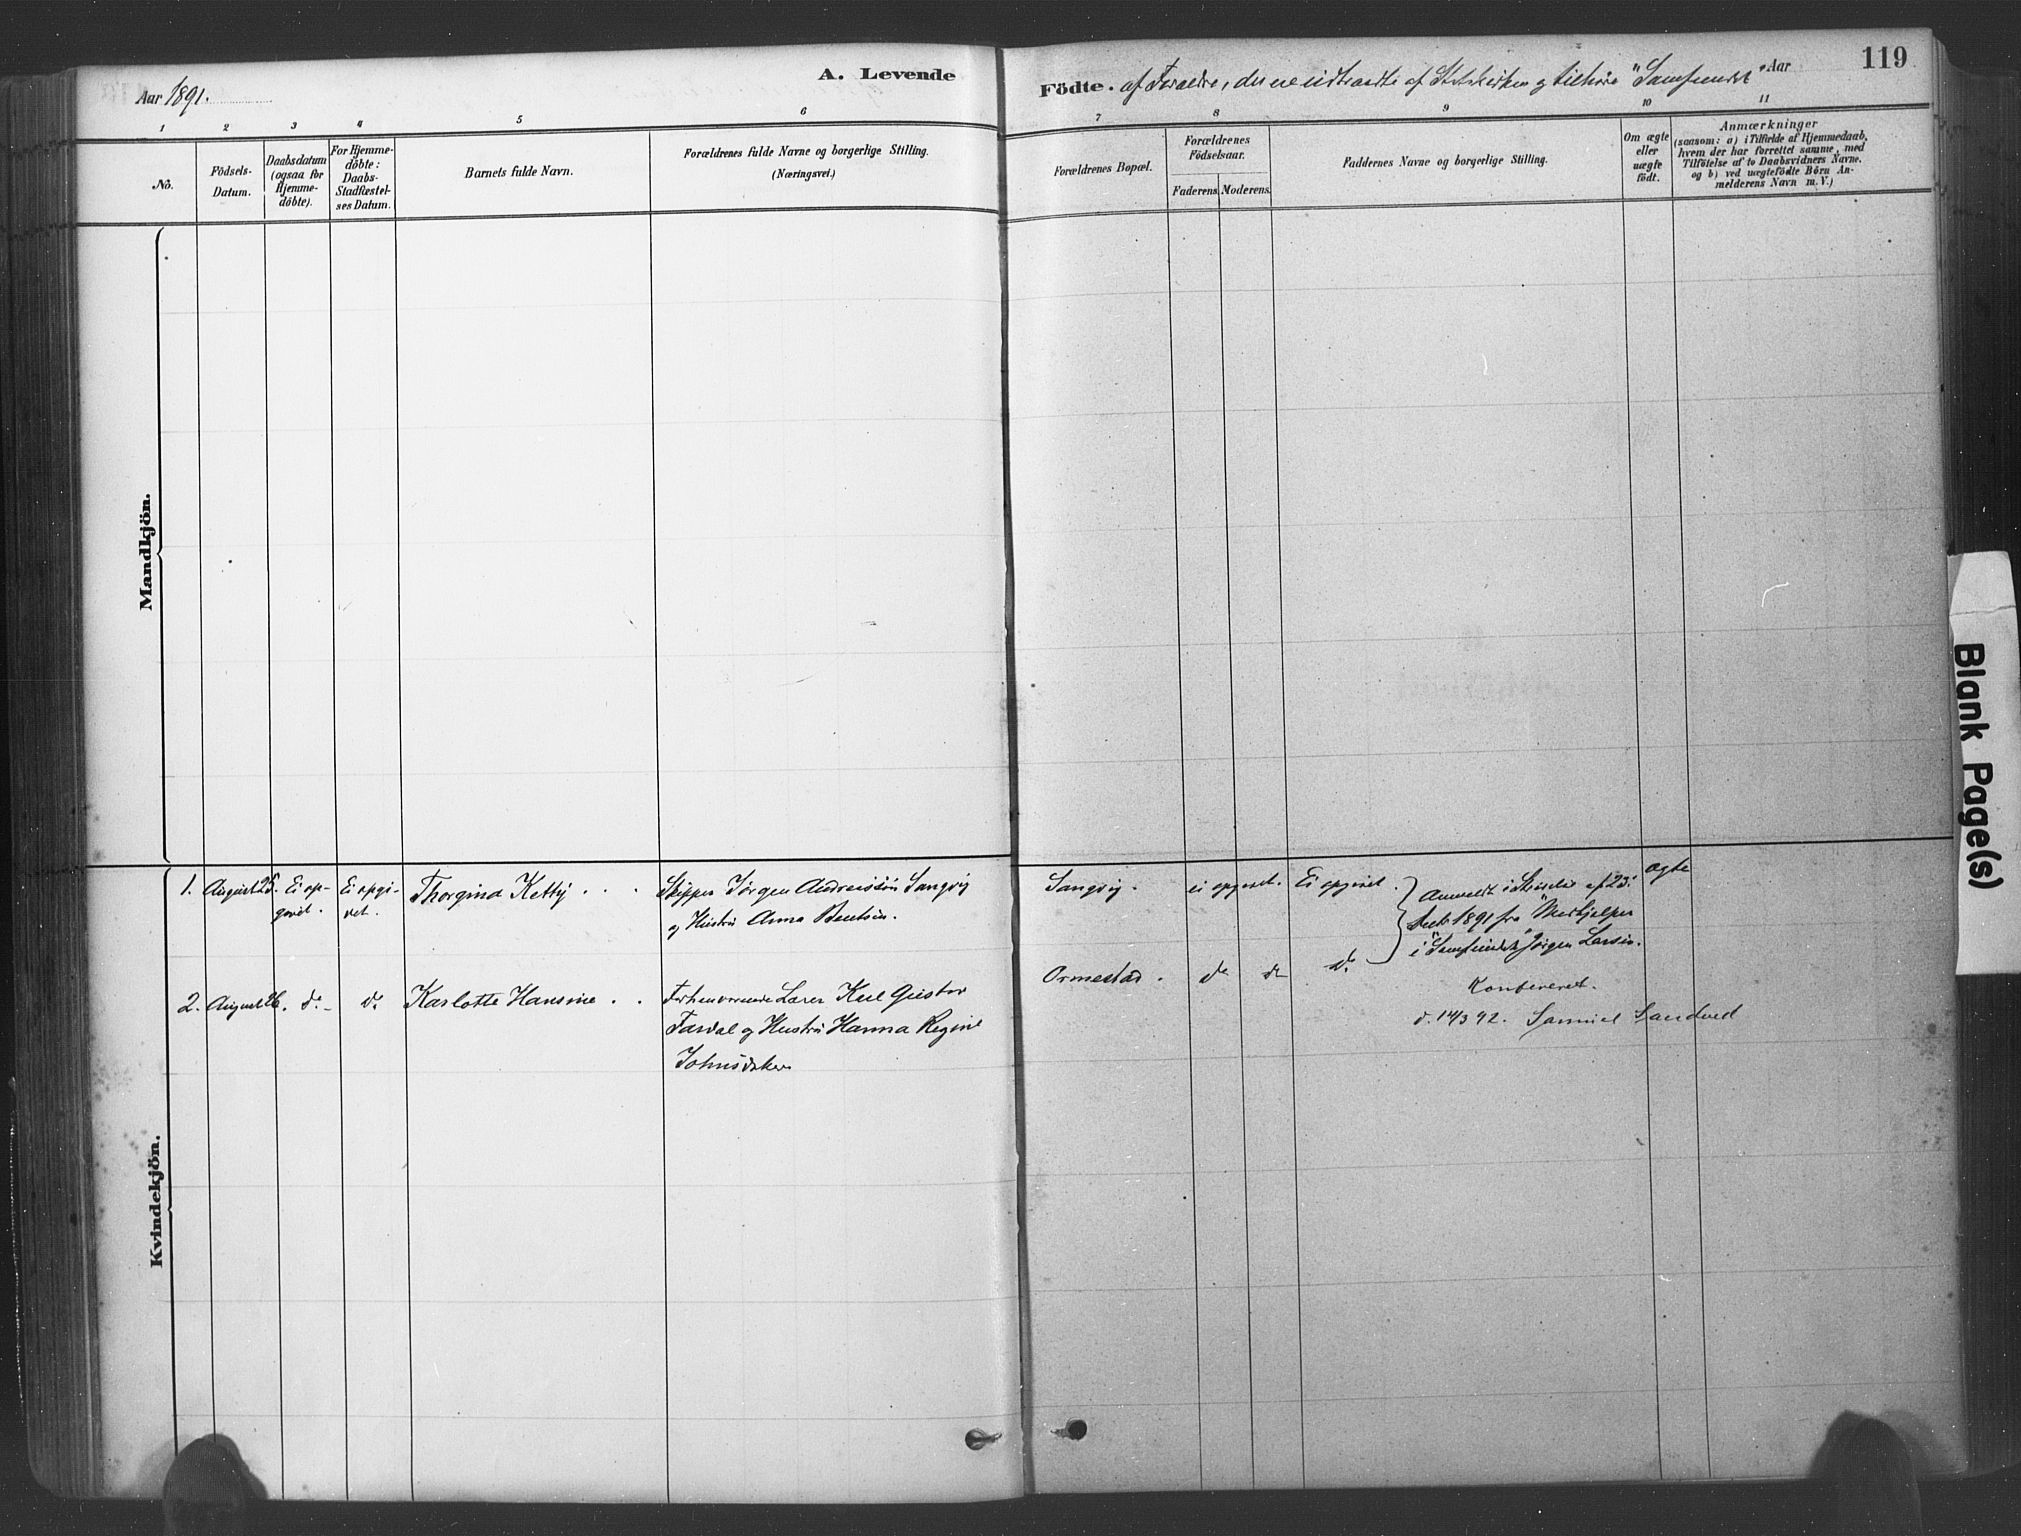 119
A. Levende Födte. af Forældre, der ere udtraadte af Statskirken og tilhöre "Samfundet" Aar
Aar 1891.
1 2 3 4 5 6 7 8 9 10 11
No.
Födsels-
Datum.
Daabsdatum
(ogsaa for
Hjemme-
döbte).
For Hjemme-
döbte:
Daabs-
Stadfæstel-
ses Datum.
Barnets fulde Navn.
Forældrenes fulde Navne og borgerlige Stilling.
(Næringsvei.)
Forældrenes Bopæl.
Forældrenes
Födselsaar.
Faderens. Moderens.
Faddernes Navne og borgerlige Stilling.
Om ægte
eller
uægte
födt.
Anmærkninger
(saasom: a) i Tilfælde af Hjemmedaab,
hvem der har forrettet samme, med
Tilföielse af to Daabsvidners Navne.
og b) ved uægtefödte Börn An-
melderens Navn m. V.)
Mandkjön.
Kvindekjön.
1. August 25. Ei op-
givet.
Ei opgi-
vet.
Thorgina Ketty
Skipper Jörgen Andreissön Sangvig
og Hustru Anna Bentsen.
Sangvig. ei opgivet. Ei opgivet.
Anmeldt i Skrivelse af 23.
1891 fra "Medhjelper
i "Samfundet" Jörgen Larsen.
ægte
2. August 26. do do Karlotte Hansine
Forhenværende Lærer Karl Gustav
Fardal og Hustru Hanna Regine
Ormestad. do do do
Konfereret.
d. 14/3 92. Samuel Sandved
Blank Page(s)